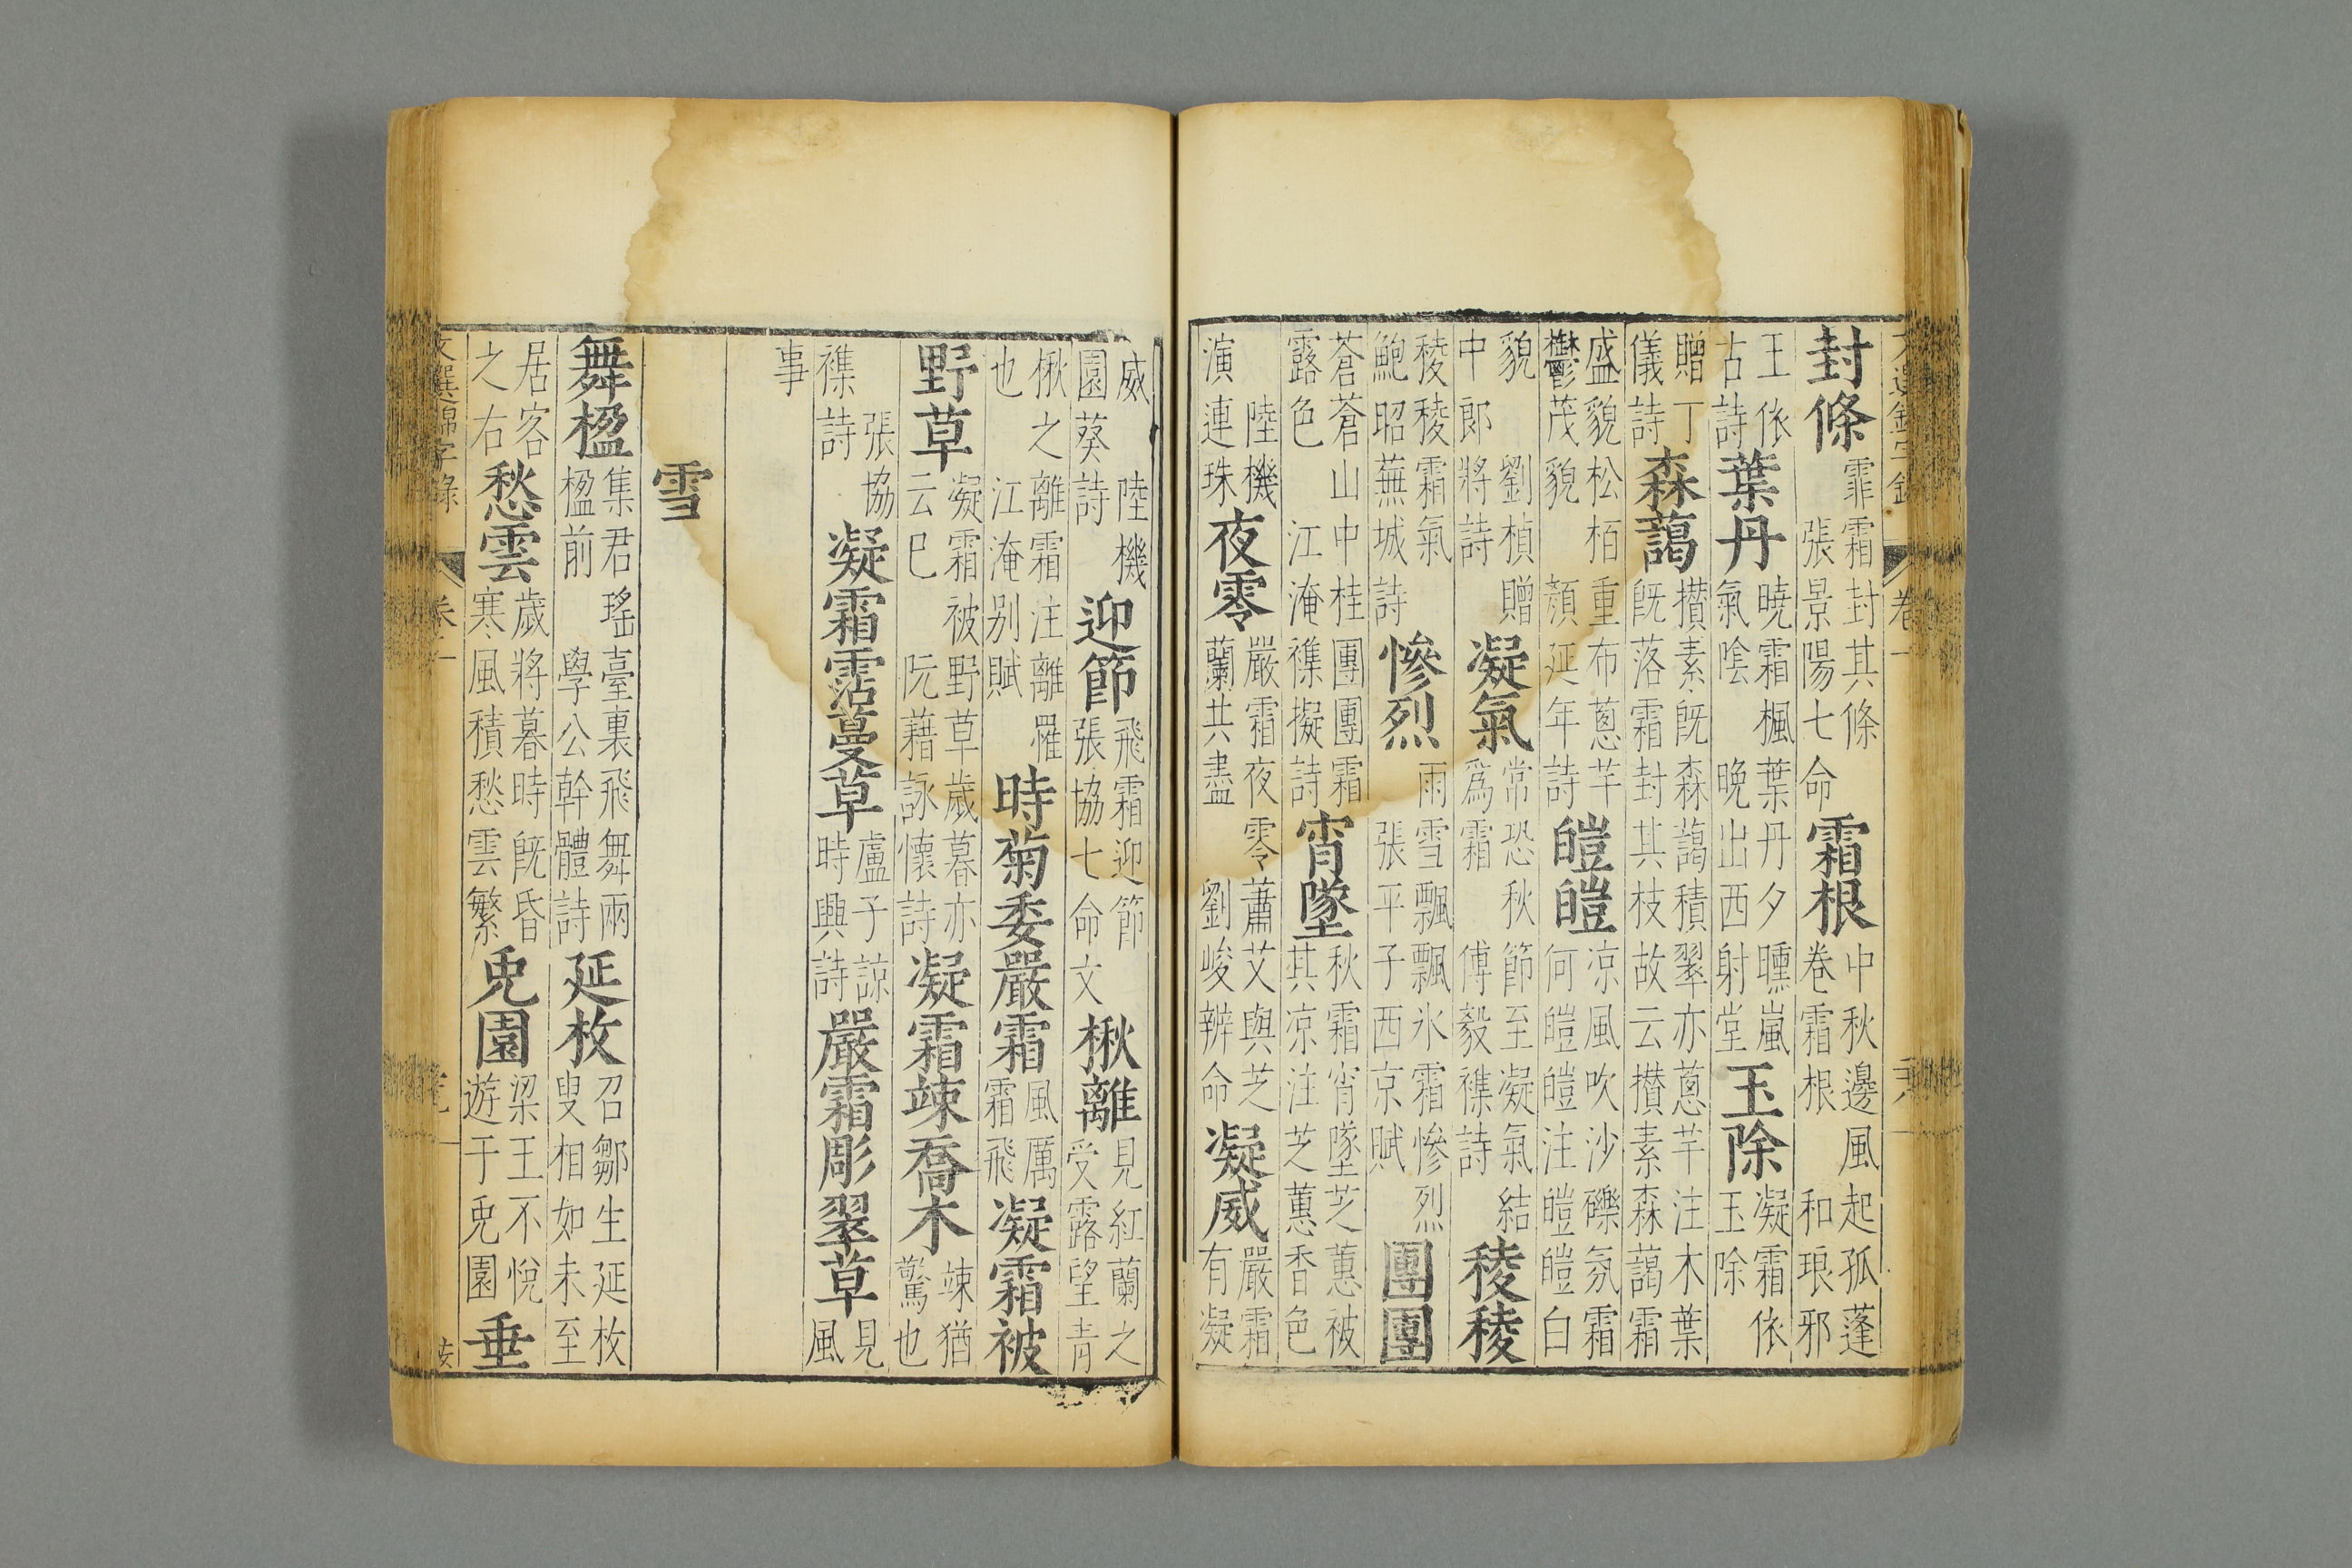 封條霏霜封其條張景陽七命霜根中秋邊風起孤蓬卷霜根和琅邪
王依古詩葉丹曉霜楓葉丹夕曛嵐氣陰晚出西射堂玉除凝霜依玉除
贈丁儀詩森藹攢素既森藹積翠亦蔥芊注木葉既落霜封其枝故云攢素森藹霜
盛貌松栢重布蔥芊鬱茂貌顏延年詩皚皚涼風吹沙礫氛霜何皚皚注皚皚白
貌劉楨贈中郎將詩凝氣常恐秋節至凝氣結爲霜傅毅襍詩稜稜
稜稜霜氣鮑昭蕪城詩慘烈雨雪飄飄氷霜慘烈張平子西京賦團團
蒼蒼山中桂團團霜露色江淹襍擬詩宵墜秋霜宵墜芝蕙被其凉注芝蕙香色
陸機演連珠夜零嚴霜夜零蕭艾與芝蘭共盡劉峻辨命凝威嚴霜有凝
威陸機園葵詩迎節飛霜迎節張協七命文楸離見紅蘭之受露望青
楸之離霜注離罹也江淹别賦時菊委嚴霜風厲霜飛凝霜被
野草凝霜被野草歲暮亦云巳阮藉詠懷詩凝霜竦喬木竦猶驚也
張協襍詩凝霜霑蔓草盧子諒時興詩嚴霜彫翠草見風
事
雪
舞楹集君瑤臺裏飛舞兩楹前學公幹體詩延枚召鄒生延枚叟相如未至
居客之右愁雲歲將暮時既昏寒風積愁雲繁兎園梁王不悅遊于兎園垂
文選錦字錄 卷一